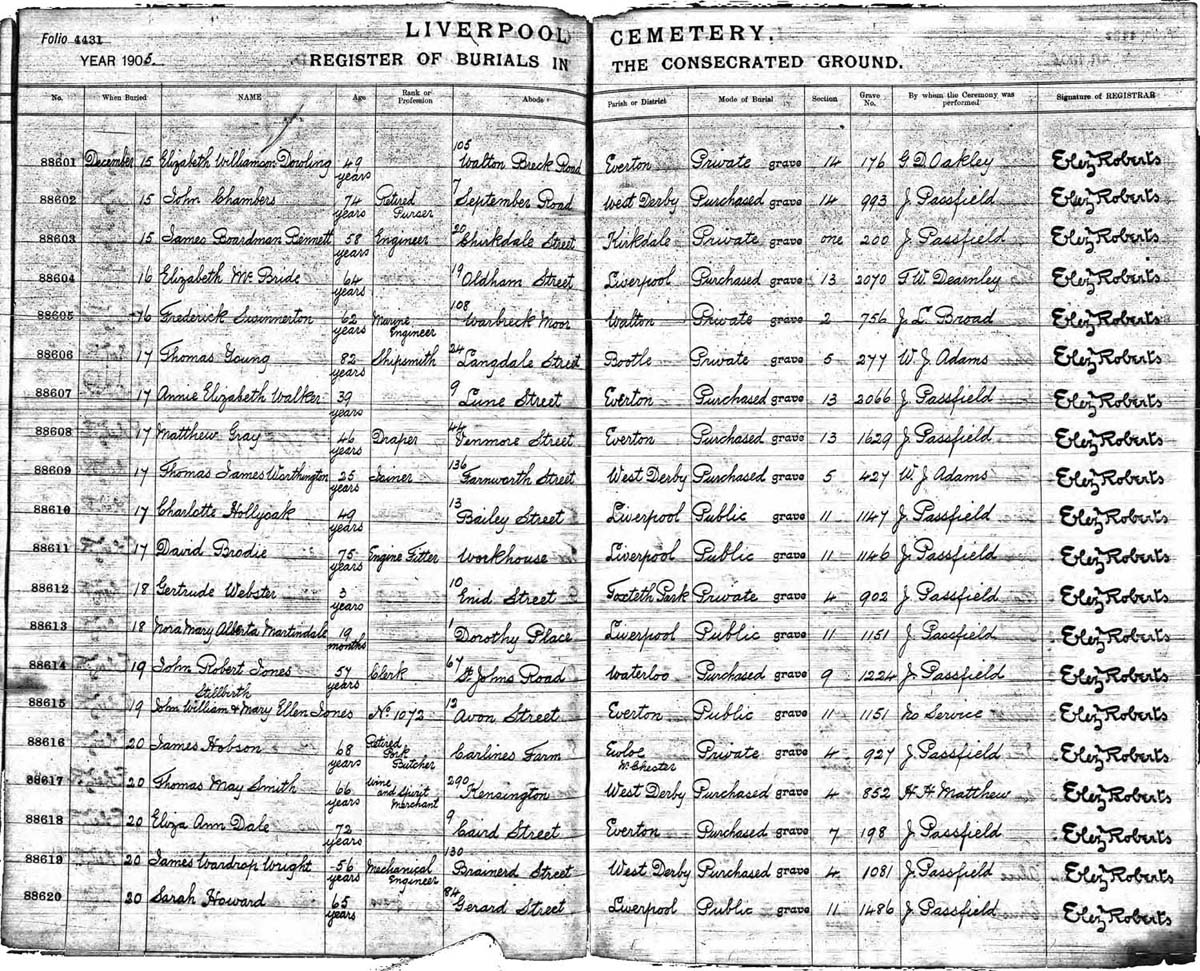 LIVERPOOL CEMETERY.
Folio 4431
YEAR 1905 REGISTER OF BURIALS IN THE CONSECRATED GROUND.
No. When Buried NAME Age Rank or Profession Abode Parish or District Mode of Burial Section Grave No. By whom the Ceremony was performed Signature of REGISTRAR
88601 December 15 Elizabeth Williamson Dowling 49 years 105 Walton Breck Road Everton Private grave 14 176 G. D. Oakley Elez Roberts
88602 15 John Chambers 74 years Retired Purser 7 September Road West Derby Purchased grave 14 993 J. Passfield Elez Roberts
88603 15 James Boardman Bennett 58 years Engineer 20 Chirkdale Street Kirkdale Private grave one 200 J. Passfield Elez Roberts
88604 16 Elizabeth Mc Bride 64 years 19 Oldham Street Liverpool Purchased grave 13 2070 T. W. Dearnley Elez Roberts
88605 16 Frederick Swinnerton 62 years Marine Engineer 108 Warbreck Moor Walton Private grave 2 756 J. L. Broad Elez Roberts
88606 17 Thomas Young 82 years Shipsmith 24 Langdale Street Bootle Private grave 5 277 W. J. Adams Elez Roberts
88607 17 Annie Elizabeth Walker 39 years 9 Lune Street Everton Purchased grave 13 2066 J. Passfield Elez Roberts
88608 17 Matthew Gray 46 years Draper 44 Venmore Street Everton Purchased grave 13 1629 J. Passfield Elez Roberts
88609 17 Thomas James Worthington 25 years Joiner 136 Farnworth Street West Derby Purchased grave 5 427 W. J. Adams Elez Roberts
88610 17 Charlotte Hollyoak 49 years 13 Bailey Street Liverpool Public grave 11 1147 J. Passfield Elez Roberts
88611 17 David Brodie 75 years Engine Fitter Workhouse Liverpool Public grave 11 1146 J. Passfield Elez Roberts
88612 18 Gertrude Webster 3 years 10 Enid Street Toxteth Park Private grave 4 902 J. Passfield Elez Roberts
88613 18 Nora Mary Alberta Martindale 19 months 1 Dorothy Place Liverpool Public grave 11 1151 J. Passfield Elez Roberts
88614 19 John Robert Jones 57 years Clerk 67 St. Johns Road Waterloo Purchased grave 9 1224 J. Passfield Elez Roberts
Stillbirth
88615 19 John William & Mary Ellen Jones No. 1072 12 Avon Street Everton Public grave 11 1151 No Service Elez Roberts
88616 20 James Hobson 68 years Retired Pork Butcher Carlines Farm Ewloe Nr. Chester Private grave 4 927 J. Passfield Elez Roberts
88617 20 Thomas May Smith 66 years Wine and Spirit Merchant 290 Kensington West Derby Purchased grave 4 852 H. H. Matthew Elez Roberts
88618 20 Eliza Ann Dale 72 years 9 Caird Street Everton Purchased grave 7 198 J. Passfield Elez Roberts
88619 20 James Wardrap Wright 56 years Mechanical Engineer 130 Brainerd Street West Derby Purchased grave 4 1081 J. Passfield Elez Roberts
88620 20 Sarah Howard 65 years 84 Gerard Street Liverpool Public grave 11 1486 J. Passfield Elez Roberts